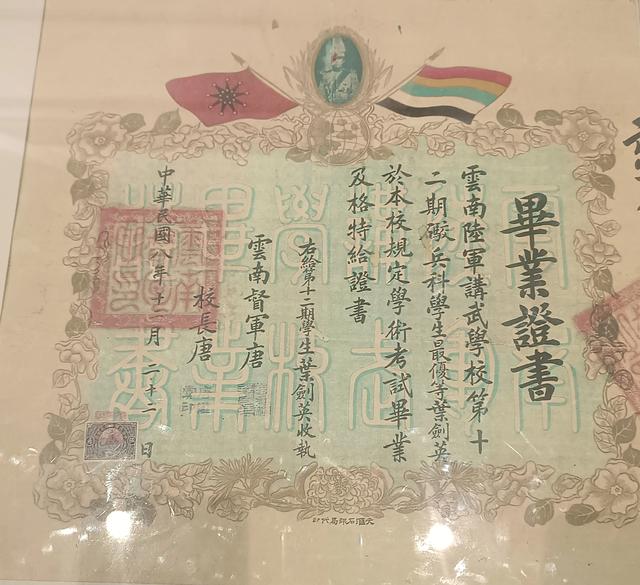 畢業證書
雲南陸軍講武學校第十
二期礮兵科學生最優等葉劍英
於本校規定學術考試畢業
及格特給證書
右給第十二期學生葉劍英收執
雲南督軍唐
校長唐
中華民國八年十二月二十二日